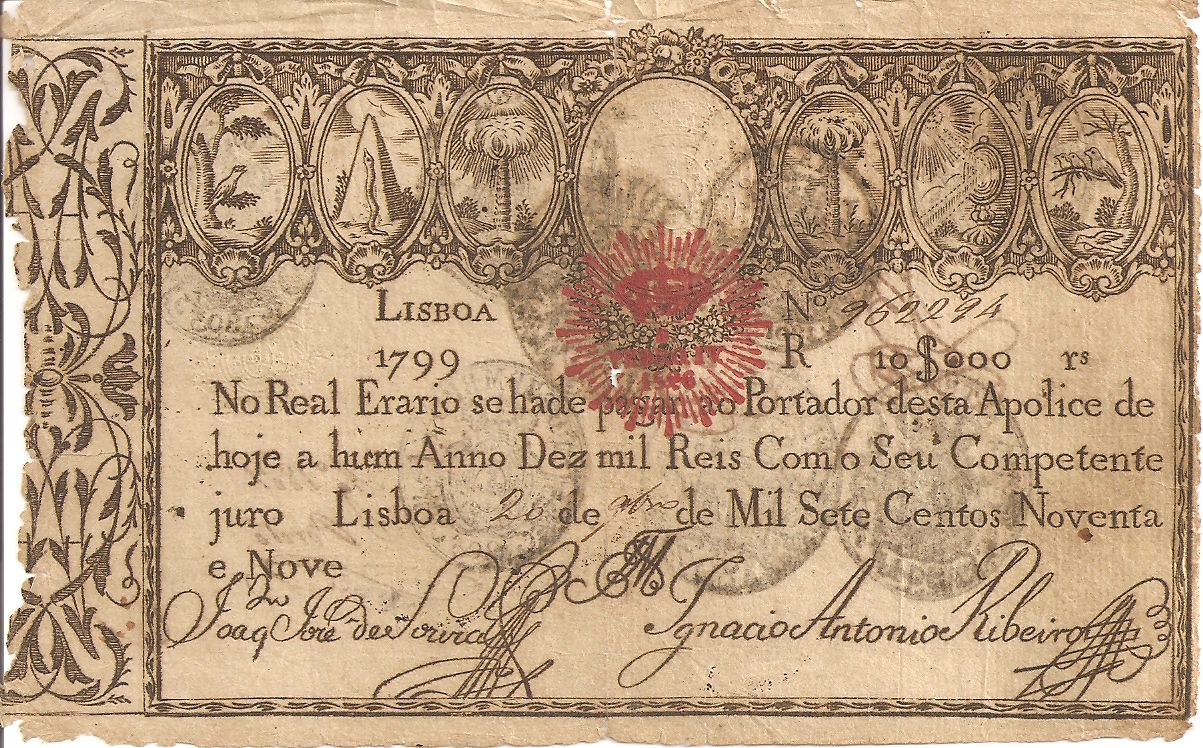 LISBOA Nº 962294
1799 R 10$000 rs
No Real Erario se hade pagar ao Portador desta Apolice de
hoje a hum Anno Dez mil Reis Com o Seu Competente
juro Lisboa 20 de 9bro de Mil Sete Centos Noventa
e Nove
Joaq Joze de Souza
Ignacio Antonio Ribeiro
1826